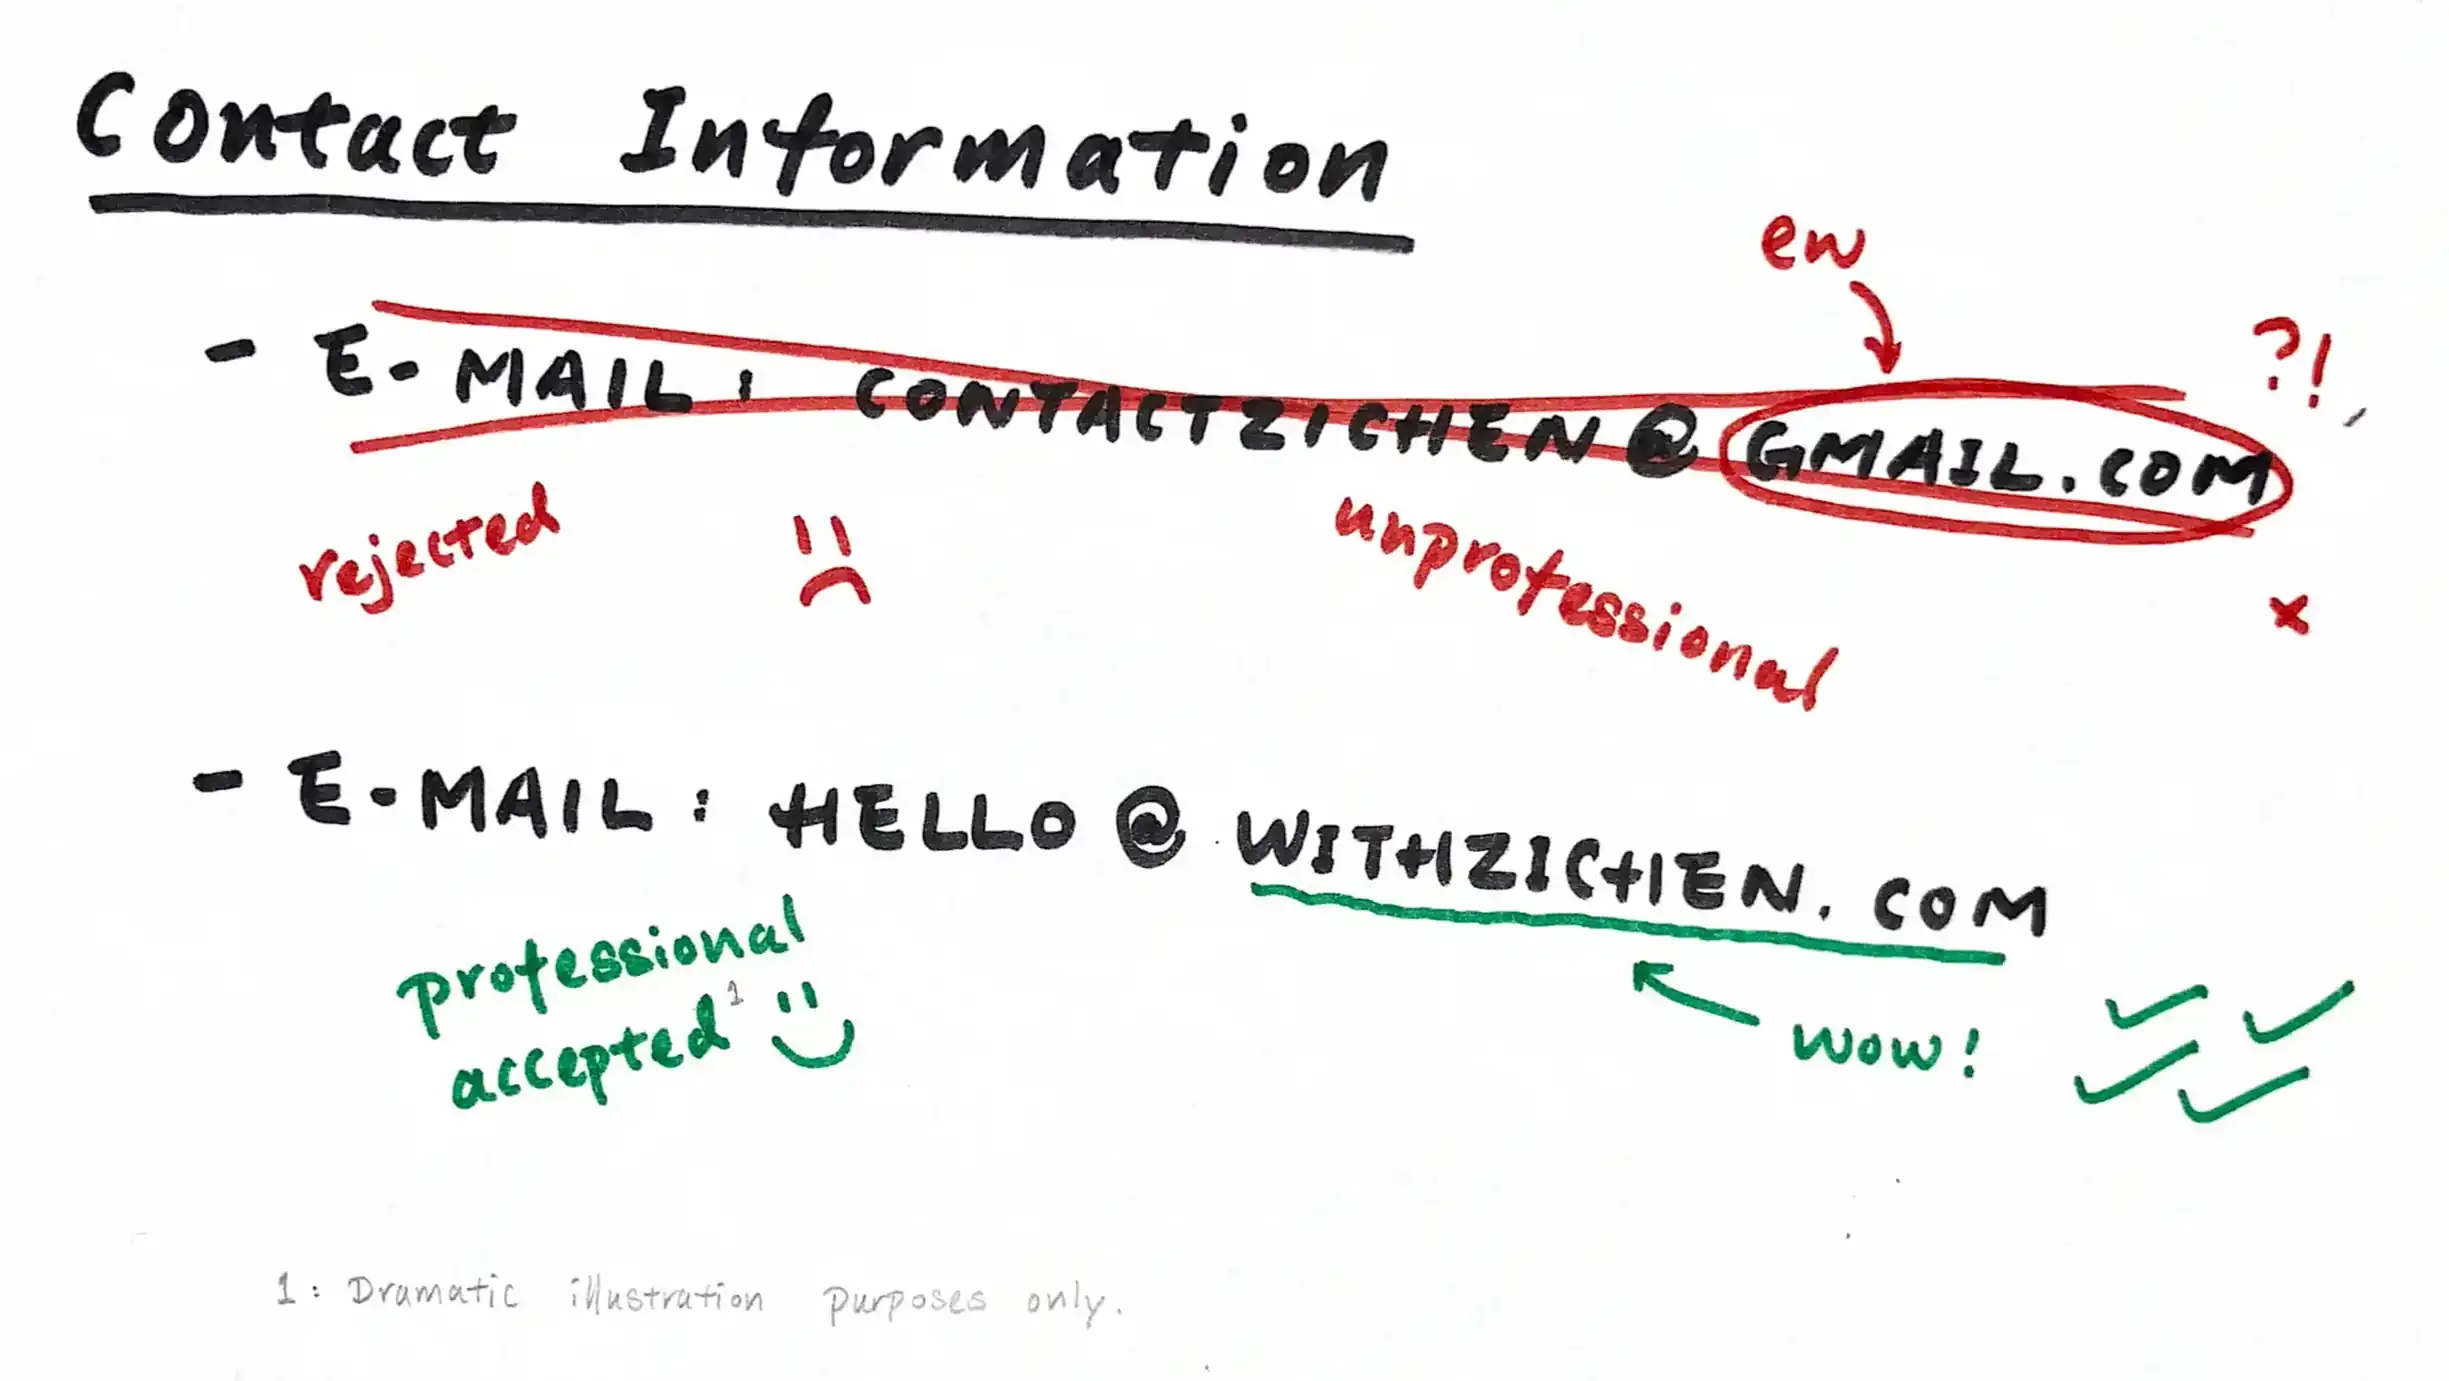 Contact Information
ew
- E-MAIL: CONTACTZICHEN@GMAIL.COM ?!
rejected
unprofessional
x
- E-MAIL: HELLO@WITHZICHEN.COM
professional
accepted¹
wow!
1: Dramatic illustration purposes only.